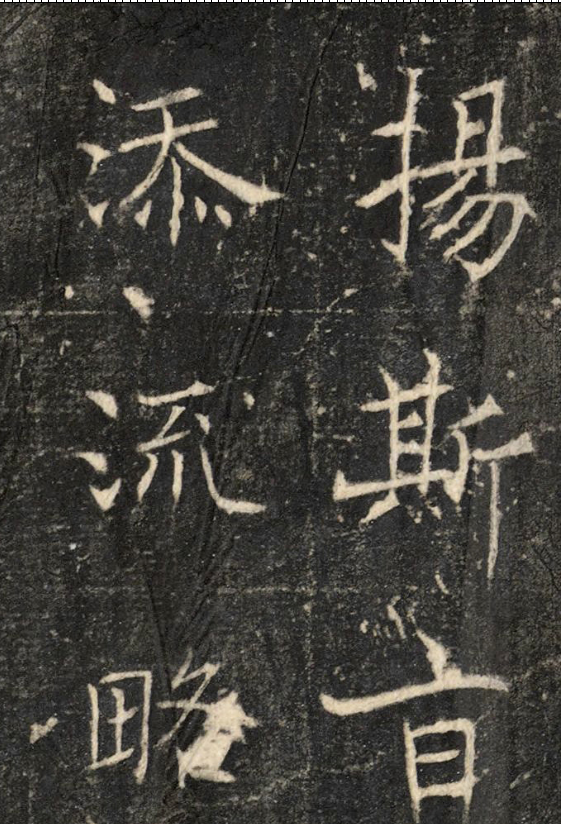 揚斯旨
添流略